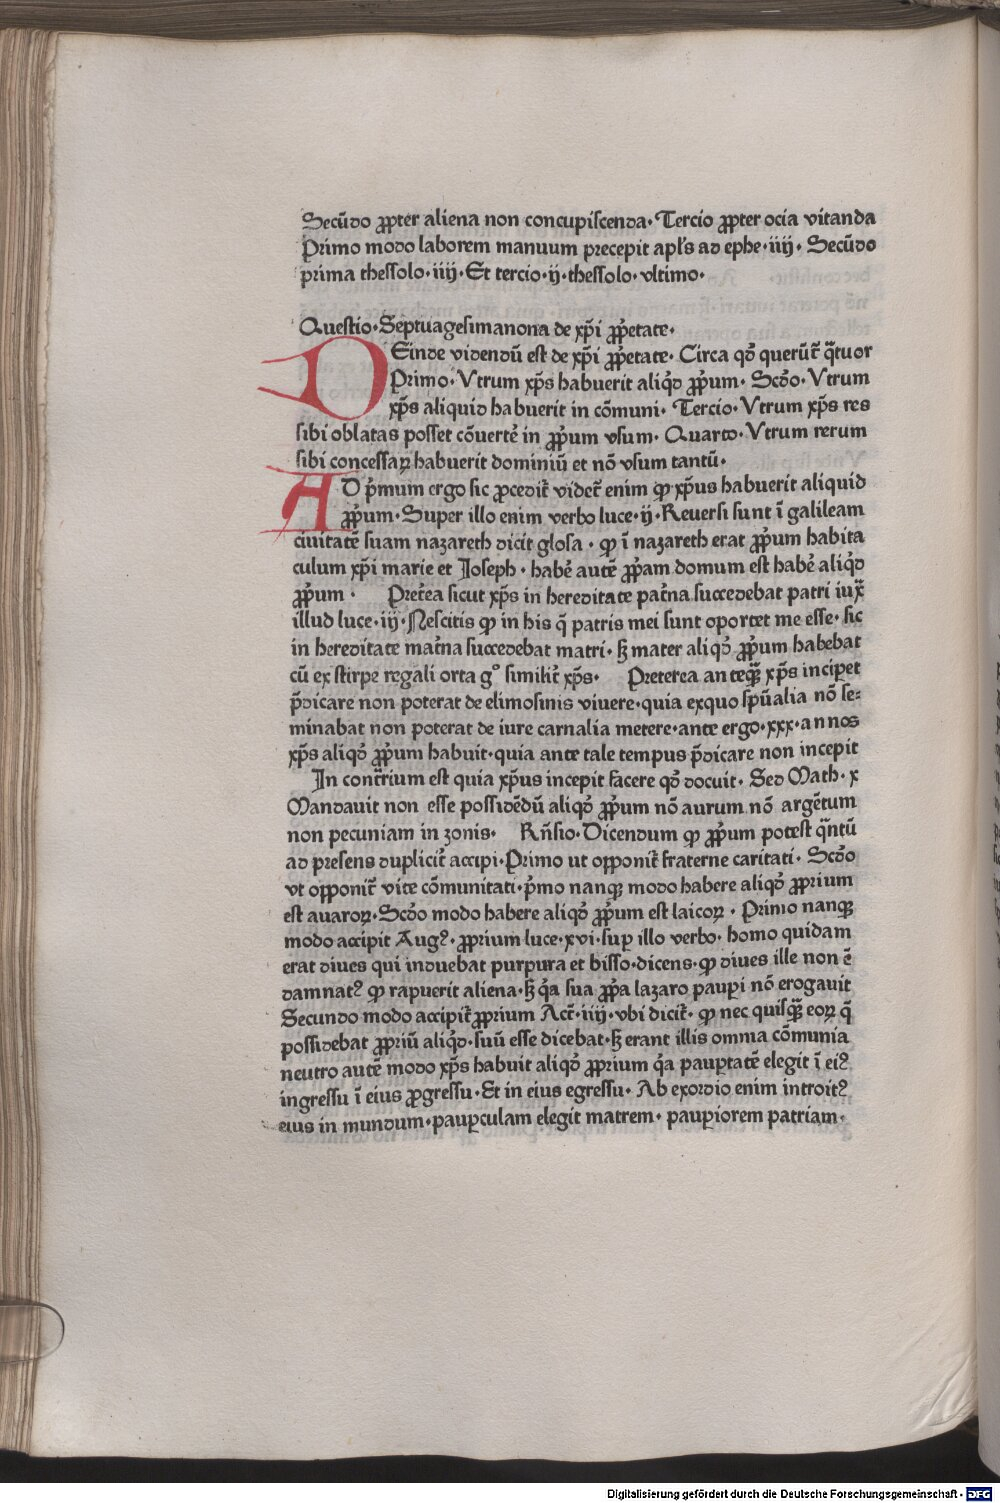 Secūdo ꝓpter aliena non concupiſcenda· Tercio ꝓpter ocia vitanda
Primo modo laborem manuum precepit apl's ad ephe·iiij· Secūdo
prima theſſolo·iiij·Et tercio·ij·theſſolo·vltimo·
Queſtio·Septuageſimanona de xp̄i ꝓp̄etate·
DEinde videndū eſt de xp̄i ꝓp̄etate· Circa qd̓ querūt̄ q̄tuor
Primo·Vtrum xp̄s habuerit aliqd̓ ꝓp̄um· Scd̓o·Vtrum
xp̄s aliquid habuerit in cōmuni· Tercio·Vtrum xp̄s res
ſibi oblatas poſſet cōuerte̓ in ꝓp̄um vſum· Quarto·Vtrum rerum
ſibi conceſſaꝝ habuerit dominiū et nō vſum tantū·
AD p̄mum ergo ſic ꝓcedit̄ videt̄ enim ꝙ xp̄us habuerit aliquid
ꝓp̄um·Super illo enim verbo luce·ij·Reuerſi ſunt ī galileam
ciuitatē ſuam nazareth dicit gloſa· ꝙ ī nazareth erat ꝓp̄um habita
culum xp̄i marie et Joſeph· habe̓ autē ꝓp̄am domum eſt habe̓ aliqd̓
ꝓp̄um· Pret̓ea ſicut xp̄s in hereditate pat̓na ſuccedebat patri iux̄
illud luce·ij·Neſcitis ꝙ in his q̄ patris mei ſunt oportet me eſſe·ſic
in hereditate mat̓na ſuccedebat matri·ſꝫ mater aliqd̓ ꝓp̄um habebat
cū ex ſtirpe regali orta g° ſimilit̓ xp̄s· Preterea anteq̄ꝫ xp̄s inciperet
p̄dicare non poterat de elimoſinis viuere·quia exquo ſpūalia nō ſe⸗
minabat non poterat de iure carnalia metere·ante ergo·xxx·annos
xp̄s aliqd̓ ꝓp̄um habuit·quia ante tale tempus p̄dicare non incepit
In cont̄rium eſt quia xp̄us incepit facere qd̓ docuit· Sed Math·x
Mandauit non eſſe poſſidēdū aliqd̓ ꝓp̄um nō aurum nō argētum
non pecuniam in zonis· Rn̄ſio·Dicendum ꝙ ꝓp̄um poteſt q̄ntū
ad preſens duplicit̓ accipi·Primo ut oꝓponit̄ fraterne caritati· Scd̓o
vt oꝓponit̄ vite cōmunitati·p̄mo nanqꝫ modo habere aliqd̓ ꝓprium
eſt auaroꝝ·Scd̓o modo habere aliqd̓ ꝓp̄um eſt laicoꝝ· Primo nanqꝫ
modo accipit Augꝰ· ꝓprium luce·xvi·ſuꝑ illo verbo· homo quidam
erat diues qui induebat purpura et biſſo·dicens·ꝙ diues ille non ē
damnatꝰ ꝙ rapuerit aliena·ſꝫ q̄a ſua ꝓp̄a lazaro pauꝑi nō erogauit
Secundo modo accipit̄ ꝓprium Act̄·iiij·vbi dicit̄· ꝙ nec quiſq̄ꝫ eoꝝ q̄
poſſidebat ꝓpriū aliqd̓·ſuū eſſe dicebat·ſꝫ erant illis omnia cōmunia
neutro autē modo xp̄s habuit aliqd̓ ꝓprium q̄a pauꝑtatē elegit ī eiꝰ
ingreſſu ī eius ꝓgreſſu·Et in eius egreſſu· Ab exordio enim introitꝰ
eius in mundum·pauꝑculam elegit matrem· pauꝑiorem patriam·
Digitalisierung gefördert durch die Deutsche Forschungsgemeinschaft - DFG